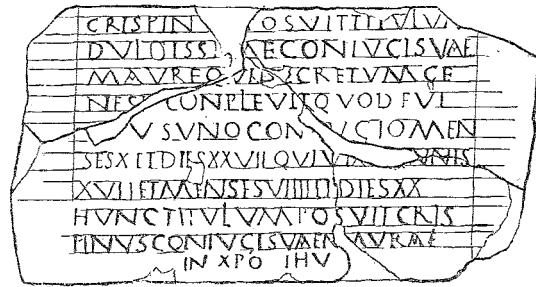 CRISPIN OSVITTITVLVM
DVLCISS AECONIVGISVAE
MAVRE CRETVMGE
NES CONPLEVITQVODFVI
VSVNOCON VGIOMEN
SESXIIDIESXXVIIQVIVI NIS
XVIIETMENSESVIIIIDIESXX
HVNCTITVLVMPOSVITCRIS
PINVSCONIVGISVAE
IN XPO IHV